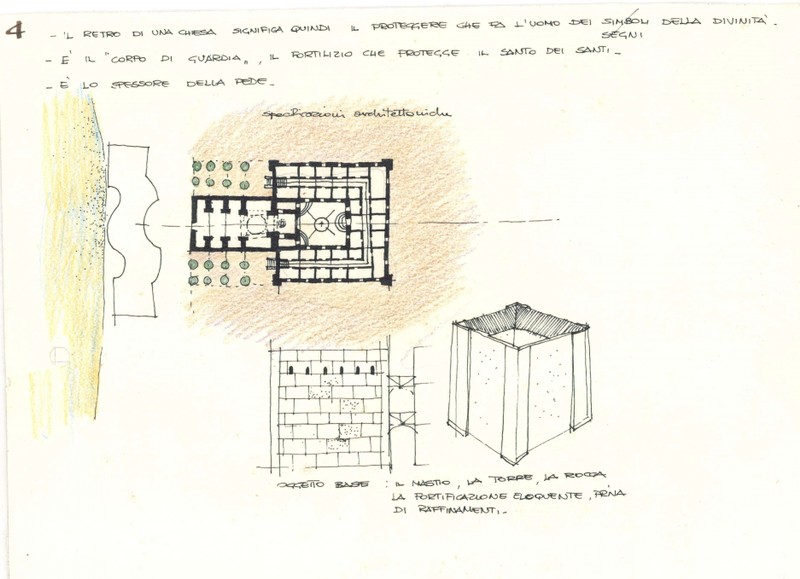 4
- IL RETRO DI UNA CHIESA SIGNIFICA QUINDI IL PROTEGGERE CHE FA L'UOMO DEI SIMBOLI DELLA DIVINITA'.
SEGNI
- E' IL "CORPO DI GUARDIA", IL FORTILIZIO CHE PROTEGGE IL SANTO DEI SANTI.-
- E' LO SPESSORE DELLA FEDE.-
specificazioni architettoniche
OGGETTO BASE : IL MASTIO, LA TORRE, LA ROCCA
LA FORTIFICAZIONE ELOQUENTE, PRIVA
DI RAFFINAMENTI.-